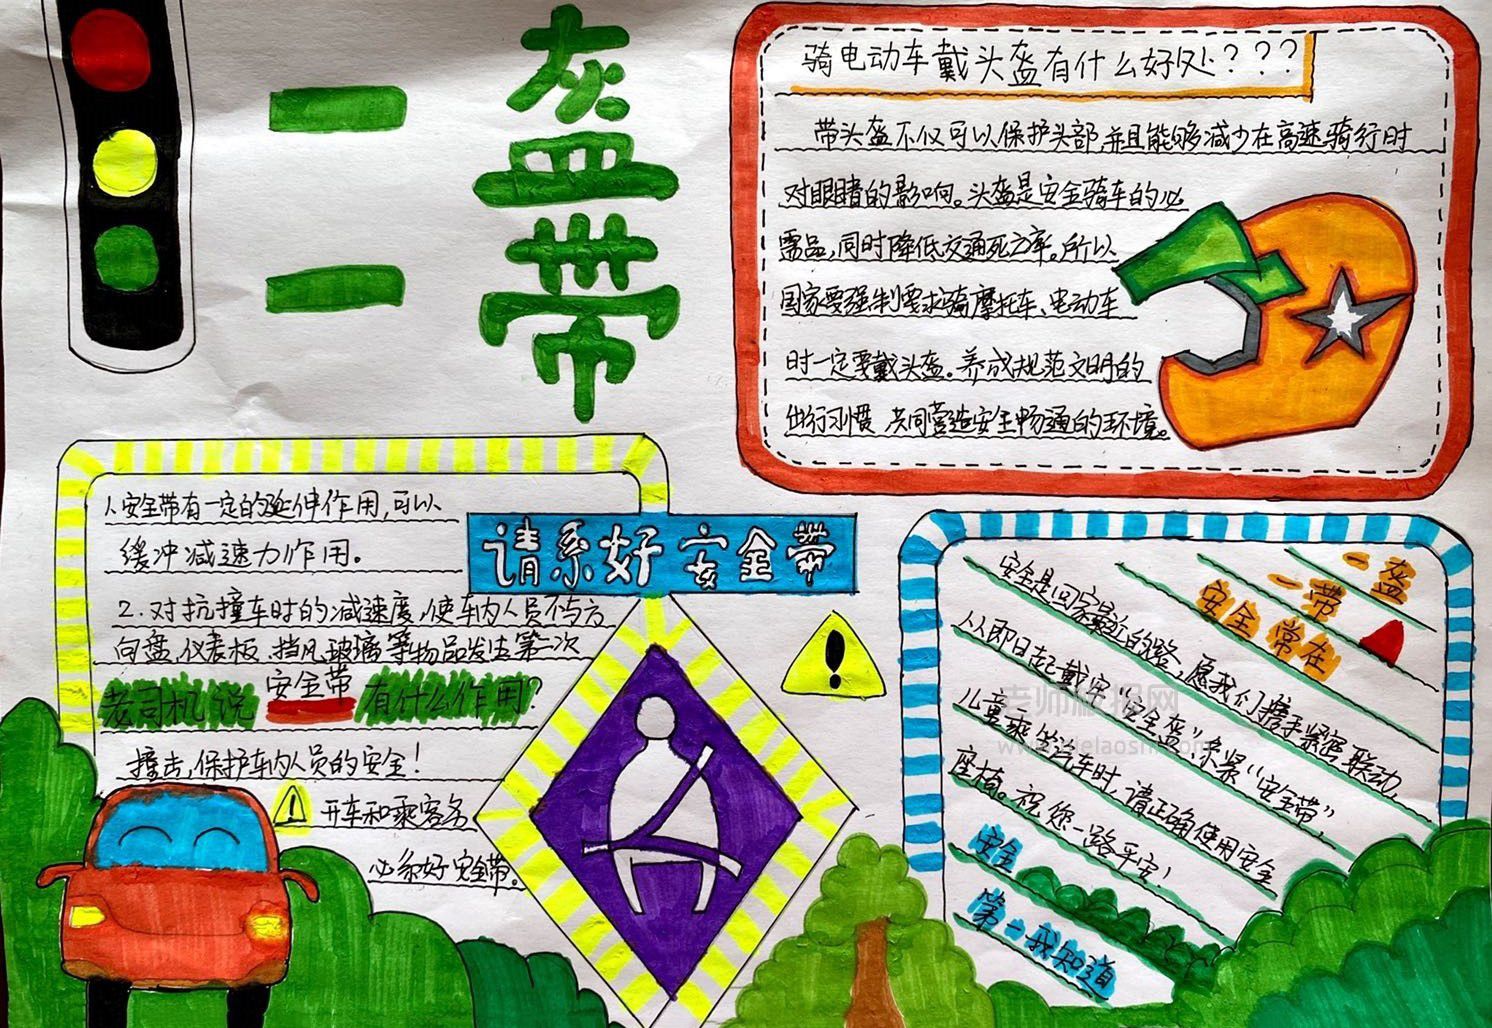 一盔
一带
骑电动车戴头盔有什么好处???
带头盔不仅可以保护头部,并且能够减少在高速骑行时
对眼睛的影响。头盔是安全骑车的必
需品,同时降低交通死亡率。所以
国家要强制要求骑摩托车、电动车
时一定要戴头盔。养成规范文明的
出行习惯 共同营造安全畅通的环境。
1、安全带有一定的延伸作用,可以
缓冲减速力作用。
请系好安全带
2.对抗撞车时的减速度,使车内人员不与方
向盘,仪表板 挡风玻璃等物品发生第二次
老司机说 安全带 有什么作用?
撞击,保护车内人员的安全!
! 开车和乘客务
必系好安全带。
!
一盔
一带
安全常在
安全是回家最近的路,愿我们携手紧密联动,
从即日起戴牢“安全盔”系紧“安全带”,
儿童乘坐汽车时,请正确使用安全
座椅。祝您一路平安!
安全
第一我知道
老师板报网